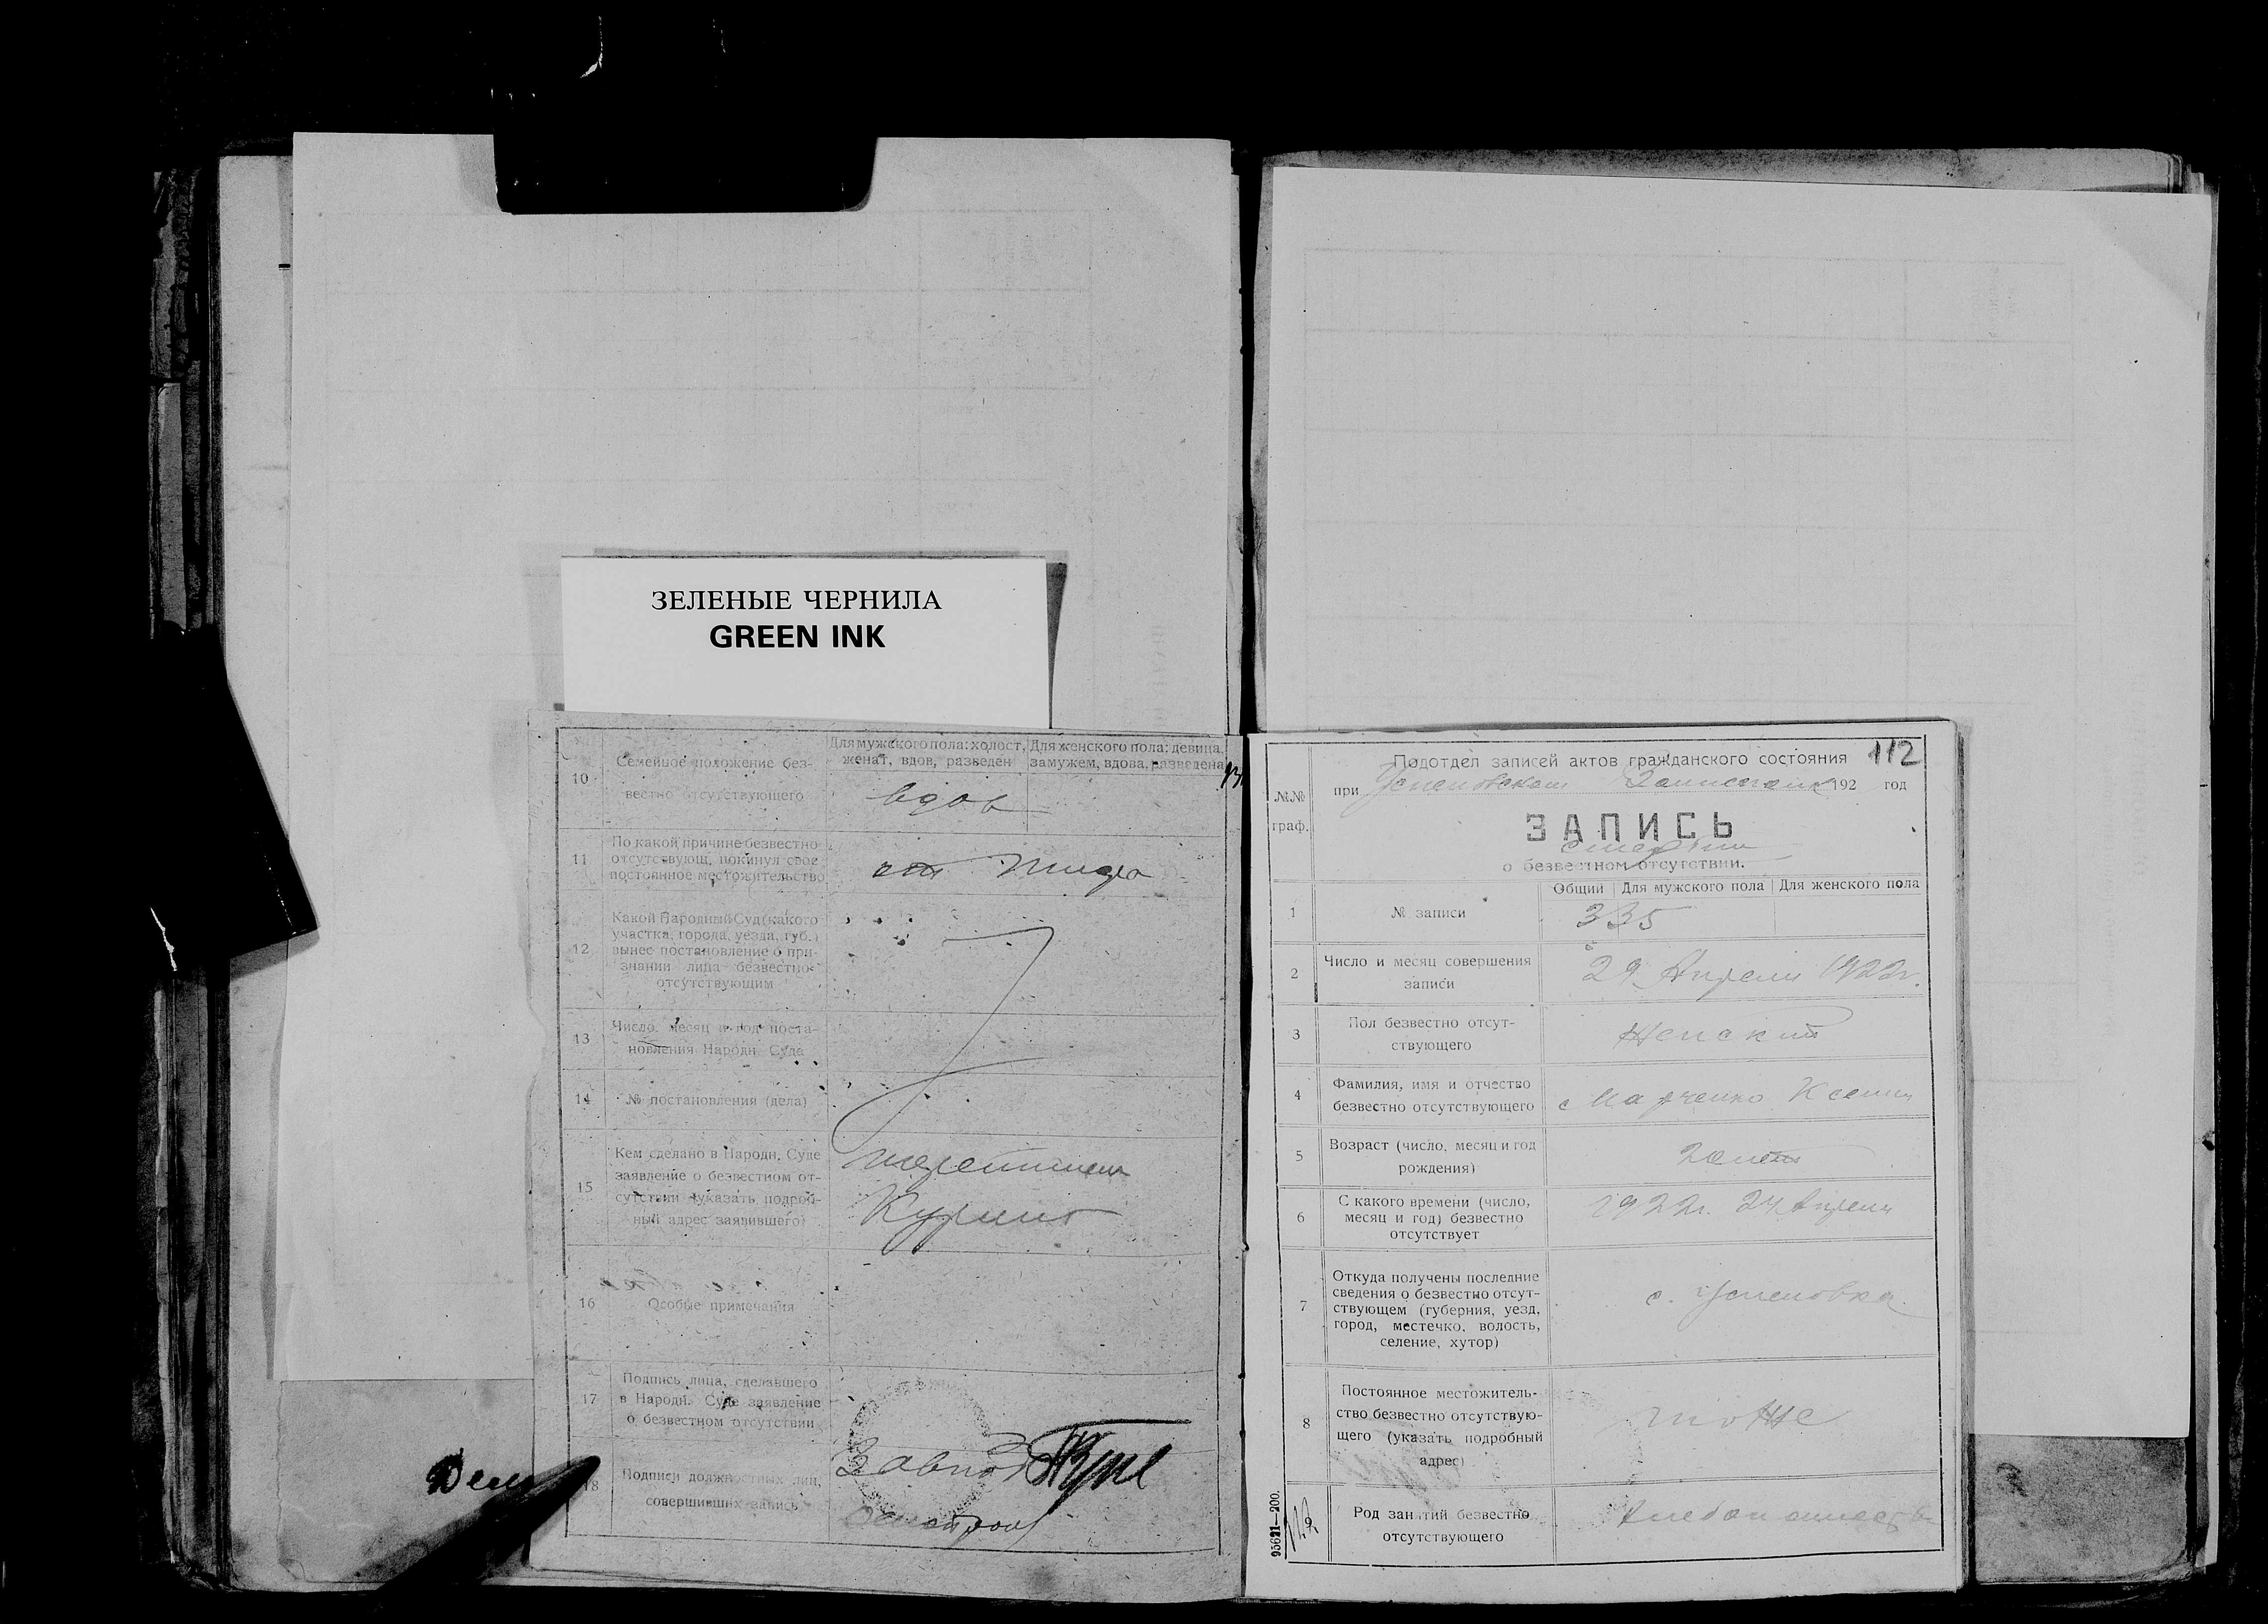 ЗЕЛЕНЫЕ ЧЕРНИЛА
GREEN INK
10
Семейное положение без-
вестно отсутствующего
Для мужского пола: холост,
женат, вдов, разведен
Для женского пола: девица,
замужем, вдова, разведена
вдов
11
По какой причине безвестно
отсутствующ. покинул свое
постоянное местожительство
от тифа
12
Какой Народный Суд (какого
участка, города, уезда, губ.)
вынес постановление о при-
знании лица безвестно-
отсутствующим
13
Число, месяц и год поста-
новления Народн. Суда
14
№ постановления (дела)
15
Кем сделано в Народн. Суде
заявление о безвестном от-
сутствии (указать подроб-
ный адрес заявившего)
16
Особые примечания
17
Подпись лица, сделавшего
в Народн. Суде заявление
о безвестном отсутствии
18
Подписи должностных лиц,
совершивших запись
112
Подотдел записей актов гражданского состояния
№№
граф.
при Успеновском 192 год
ЗАПИСЬ
смерти
о безвестном отсутствии.
Общий
Для мужского пола
Для женского пола
1
№ записи
335
2
Число и месяц совершения
записи
29 Апреля 1922г.
3
Пол безвестно отсут-
ствующего
Женский
4
Фамилия, имя и отчество
безвестно отсутствующего
Марченко Ксения
5
Возраст (число, месяц и год
рождения)
6
С какого времени (число,
месяц и год) безвестно
отсутствует
1922г. 24 Апреля
7
Откуда получены последние
сведения о безвестно отсут-
ствующем (губерния, уезд,
город, местечко, волость,
селение, хутор)
с. Успеновка
8
Постоянное местожитель-
ство безвестно отсутствую-
щего (указать подробный
адрес)
тоже
Род занятий безвестно
отсутствующего
95621—200.